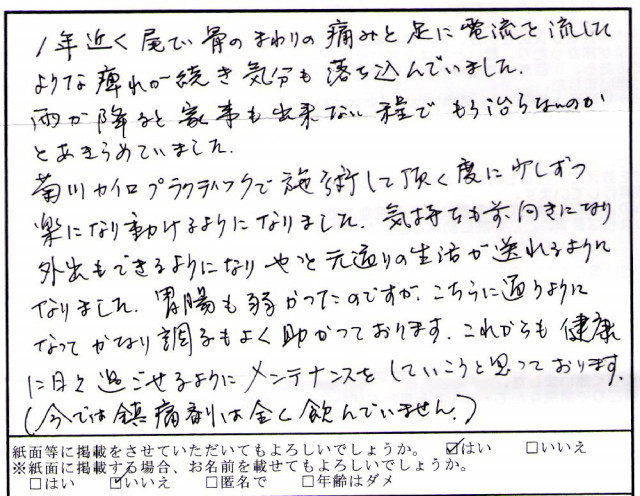 1年近く尾てい骨のまわりの痛みと足に電流を流した
ような痺れが続き気分も落ち込んでいました。
雨が降ると家事も出来ない程でもう治らないのか
とあきらめていました。
菊川カイロプラクティックで施術して頂く度に少しずつ
楽になり動けるようになりました。気持ちも前向きになり
外出もできるようになりやっと元通りの生活が送れるように
なりました。胃腸も弱かったのですが、こちらに通うように
なってかなり調子もよく助かっております。これからも健康
に日々過ごせるようにメンテナンスをしていこうと思っております。
(今では鎮痛剤は全く飲んでいません。)
紙面等に掲載をさせていただいてもよろしいでしょうか。 ☑はい □いいえ
※紙面に掲載する場合、お名前を載せてもよろしいでしょうか。
□はい ☑いいえ □匿名で □年齢はダメ